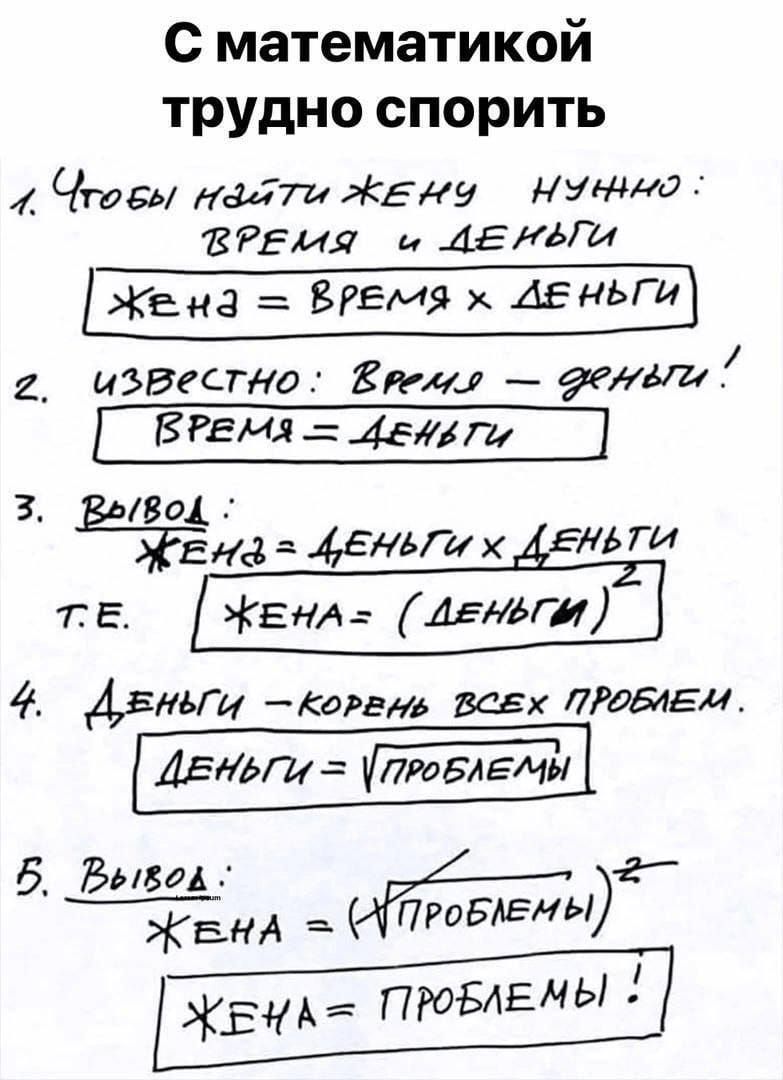 С математикой
трудно спорить
1. Чтобы найти жену нужно:
время и деньги
Жена = время x деньги
2. известно: Время – деньги!
Время = деньги
3. Вывод:
Жена = Деньги x Деньги
т.е. Жена = (деньги)²
4. Деньги – корень всех проблем.
Деньги = √проблемы
5. Вывод:
Жена = (√проблемы)²
Жена = проблемы!